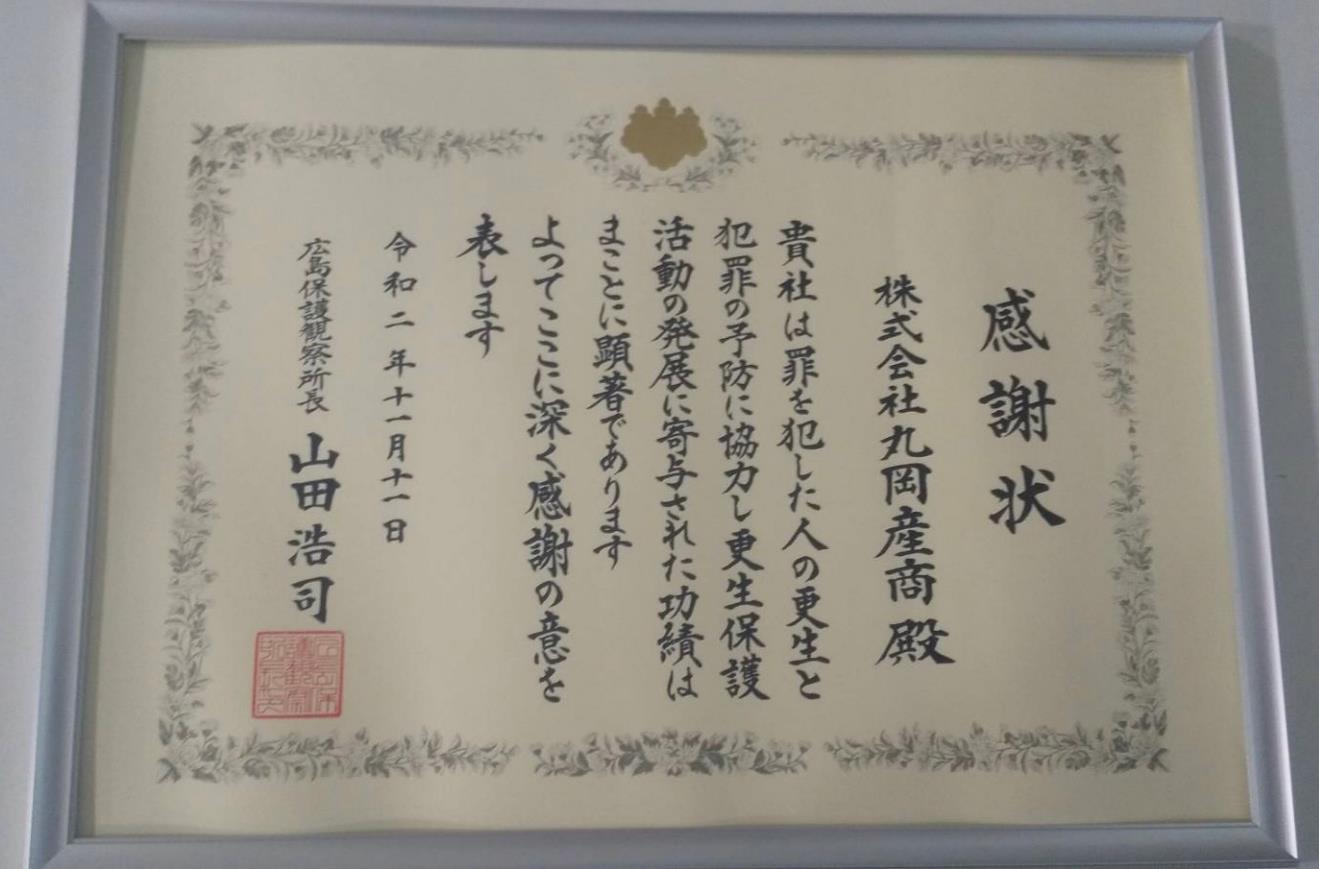 感謝状
株式会社丸岡産商殿
貴社は罪を犯した人の更生と
犯罪の予防に協力し更生保護
活動の発展に寄与された功績は
まことに顕著であります
よってここに深く感謝の意を
表します
令和二年十一月十一日
広島保護観察所長 山田浩司